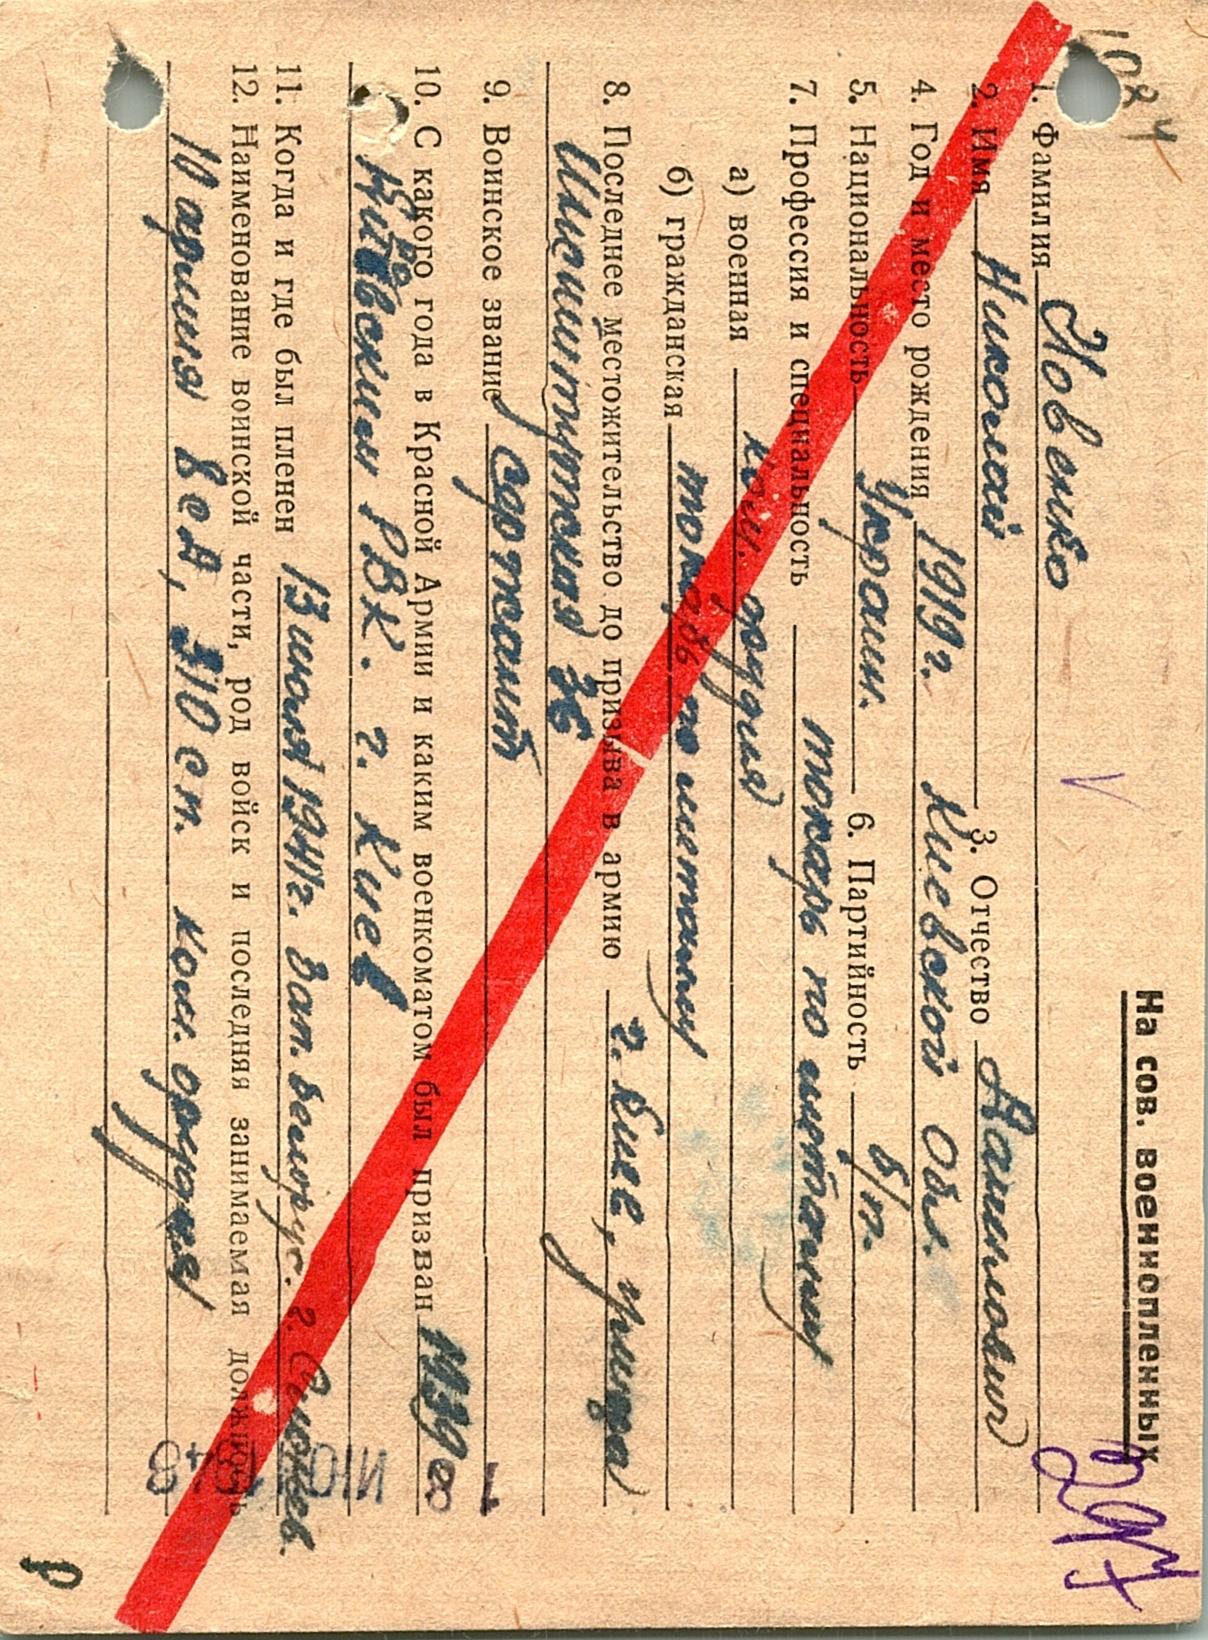 На сов. военнопленных
1. Фамилия Новенко
2. Имя Николай 3. Отчество
4. Год и место рождения 1919 г. Киевской обл.
5. Национальность Украин. 6. Партийность б/п.
7. Профессия и специальность токарь по металлу
а) военная ком. орудия
б) гражданская токарь по металлу
8. Последнее местожительство до призыва в армию г. Киев, улица
Институтская 36
9. Воинское звание Сержант
10. С какого года в Красной Армии и каким военкоматом был призван 1939
РВК. г. Киев
11. Когда и где был пленен 13 июля 1941 г. Зап. Белорус. г.
12. Наименование воинской части, род войск и последняя занимаемая должность
10 армия 310 ст. ком. орудия